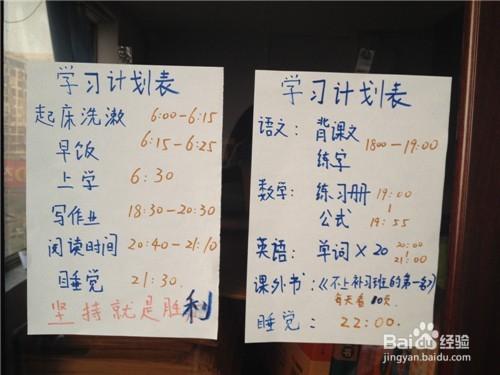 学习计划表
起床洗漱 6:00-6:15
早饭 6:15-6:25
上学 6:30
写作业 18:30-20:30
阅读时间 20:40-21:10
睡觉 21:30
坚持就是胜利
学习计划表
语文: 背课文
练字 1800-19:00
数学: 练习册 19:00
公式 19:55
英语: 单词×20 20:00
21:00
课外书:《不上补习班的第一名》
每天看10页
睡觉: 22:00.
Baidu经验
jingyan.baidu.com